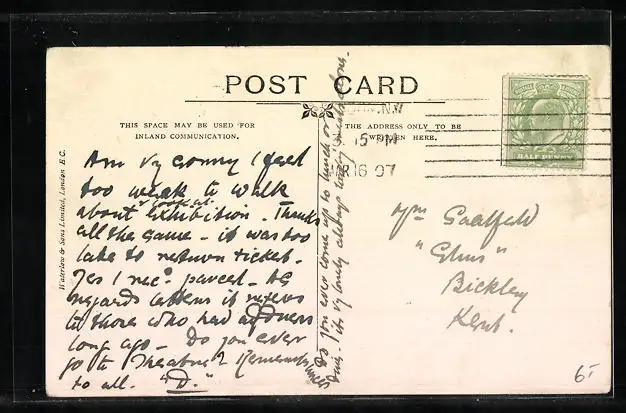 POST CARD
THIS SPACE MAY BE USED FOR
INLAND COMMUNICATION.
THE ADDRESS ONLY TO BE
WRITTEN HERE.
Waterlow & Sons Limited, London E.C.
Am vy sorry I feel
too weak to walk
about & look at Exhibition. Thanks
all the same - it was too
late to return ticket.
Yes I rec'd parcel. As
regards letters it refers
to those who had
long ago - Do you ever
go to Theatre? Remembrances
to all. "D."
Do you ever come up to lunch or
vy lonely
5 15 PM
16 07
HALF PENNY
Bickley
Kent.
6/-